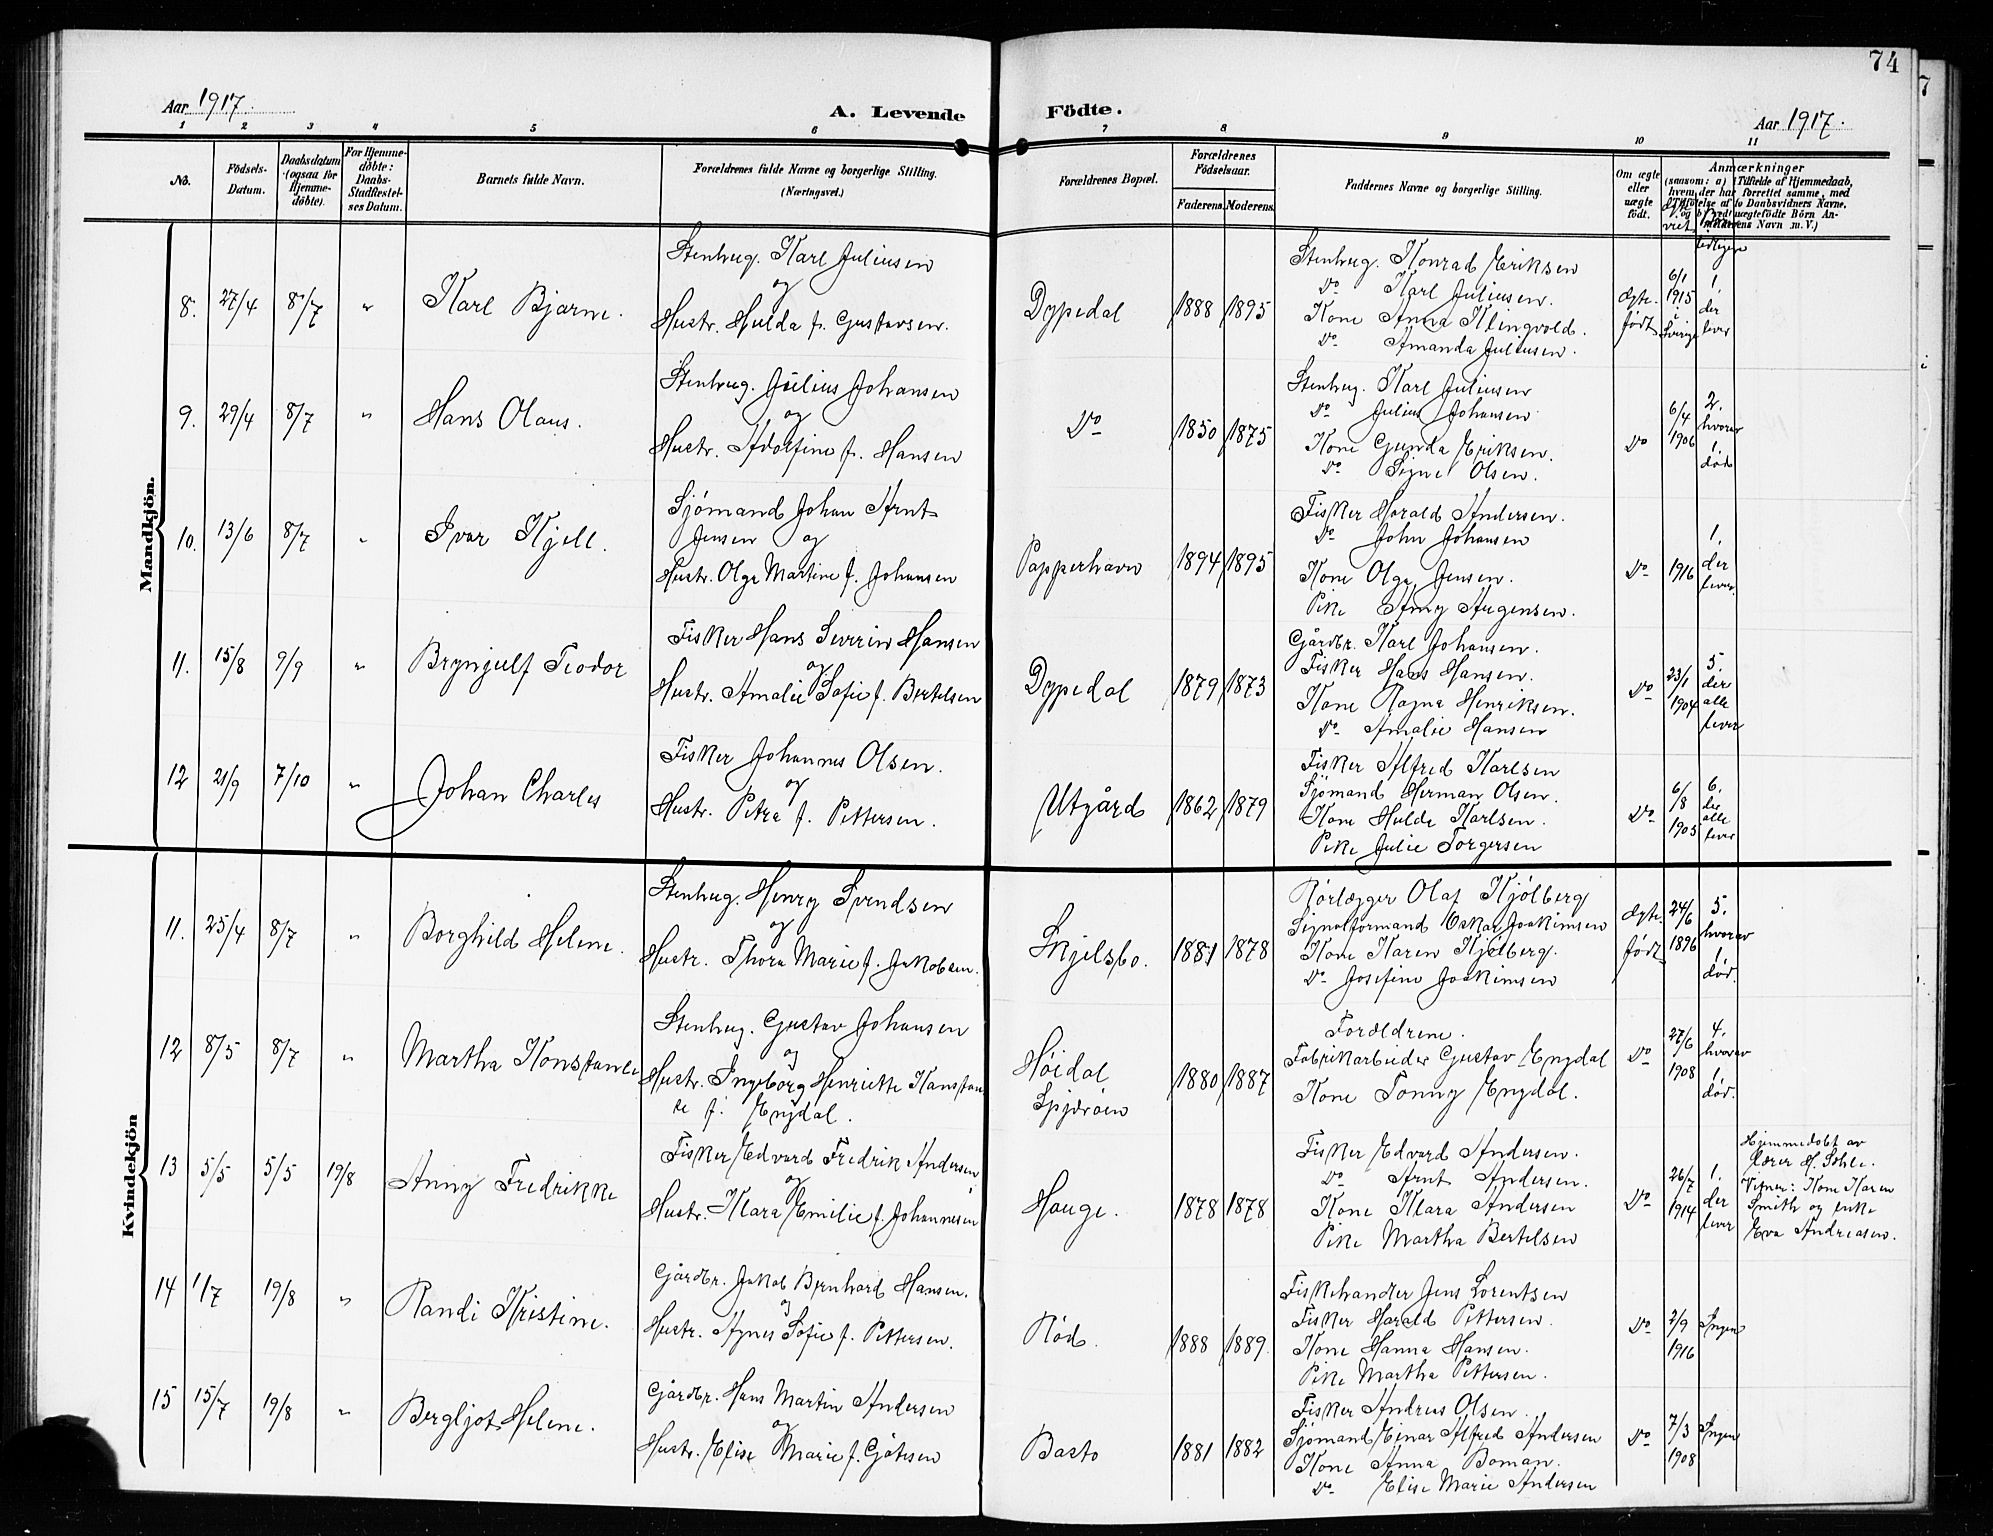 74
Aar 1917.
A. Levende Födte.
Aar 1917.
1 2 3 4 5 6 7 8 9 10 11
No.
Födsels-Datum.
Daabsdatum (ogsaa for Hjemme-döbte).
For Hjemme-döbte: Daabs-Stadfæstel-ses Datum.
Barnets fulde Navn.
Forældrenes fulde Navne og borgerlige Stilling. (Næringsvei.)
Forældrenes Bopæl.
Forældrenes Födselsaar.
Faderens. Moderens.
Faddernes Navne og borgerlige Stilling.
Om ægte eller uægte födt.
Anmærkninger
Mandkjön.
8. 27/4 8/7 " Karl Bjarne.
Stenhug. Karl Juliusen
og
Hustr. Hulda f. Gustavsen.
Dypedal 1888 1895
Stenhug. Konrad Eriksen
Do Karl Juliusen.
Kone Anna Klingvold.
Do Amanda Juliusen.
Ægte født
6/1 1915 i Sverige
1. der lever
9. 29/4 8/7 " Hans Olaus.
Stenhug. Julius Johansen
og
Hustr. Adolfine f. Hansen
Do 1850 1875
Stenhug. Karl Juliusen
Do Julius Johansen
Kone Gunda Eriksen.
Do Signe Olsen.
Do
6/4 1906
2. hvorav 1 død
10. 13/6 8/7 " Ivar Kjell.
Sjömand Johan Arnt
Jensen og
Hustr. Olga Martine f. Johansen
Papperhavn 1894 1895
Fisker Harald Andersen.
Do John Johansen
Kone Olga Jensen.
Pike Amy Augensen.
Do
1916
1. der lever.
11. 15/8 9/9 " Brynjulf Teodor
Fisker Hans Severin Hansen
og
Hustr. Amalie Sofie f. Bertelsen
Dypedal 1879 1873
Gårdbr. Karl Johansen.
Fisker Hans Hansen.
Kone Ragna Henriksen.
Do Amalie Hansen
Do
23/1 1904
5. der alle lever
12 21/9 7/10 " Johan Charles
Fisker Johannes Olsen.
og
Hustr. Petra f. Pettersen.
Utgård 1862 1879
Fisker Alfred Karlsen
Sjömand Herman Olsen.
Kone Hulda Karlsen.
Pike Julie Torgersen
Do
6/8 1905
6. der alle lever
Kvindekjön
11. 25/4 8/7 " Borghild Helene.
Stenhug. Henry Svendsen
og
Hustr. Thora Marie f. Jakobsen.
Skjelsbo. 1881 1878
Rörlægger Olaf Kjölberg
Signalformand Oskar Joakimsen
Kone Karen Kjölberg.
Do Josefine Joakimsen
Ægte født
24/6 1896
5. hvorav 1 død.
12 8/5 8/7 " Martha Konstanse
Stenhug. Gustav Johansen
og
Hustr. Ingeborg Henriette Konstan-
se f. Engdal.
Höidal Spjæröen 1880 1887
Forældrene.
Fabrikarbeider Gustav Engdal
Kone Tonny Engdal.
Do
27/6 1908
4. hvorav 1 død.
13 5/5 5/5 19/8 Anny Fredrikke
Fisker Edvard Fredrik Andersen
og
Hustr. Klara Emilie f. Johannesen
Hauge. 1878 1878
Fisker Edvard Andersen.
Do Arnt Andersen.
Kone Klara Andersen
Pike Martha Bertelsen
Do
26/7 1914
1. der lever
Hjemmedøbt av
lærer H. Sohle.
Vitner: Kone Karen
Smith og enke
Eva Andreasen.
14 1/7 19/8 " Randi Kristine.
Gårdbr. Jakob Bernhard Hansen.
og
Hustr. Agnes Sofie f. Pettersen.
Röd. 1888 1889.
Fiskehandler Jens Lorentsen
Fisker Harald Pettersen.
Kone Hanna Hansen.
Pike Martha Pettersen.
Do
2/9 1916
Ingen
15 15/7 19/8 " Bergljot Helene.
Gårdbr. Hans Martin Andersen
og
Hustr. Elise Marie f. Gjötesen
Basto 1881 1882
Fisker Andreas Olsen
Sjömand Einar Alfred Andersen
Kone Anna Boman.
Do Elise Marie Andersen
Do
7/3 1908
Ingen